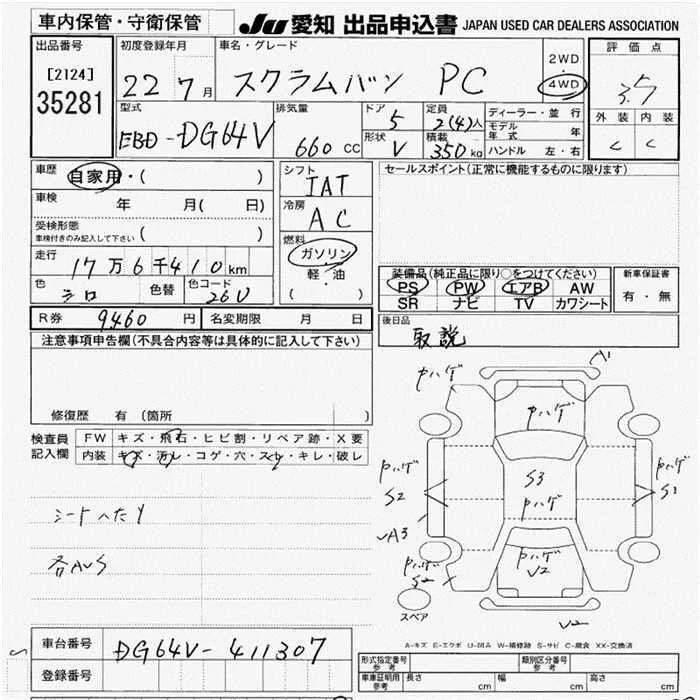 車内保管・守衛保管 JU 愛知 出品申込書 JAPAN USED CAR DEALERS ASSOCIATION
出品番号 初度登録年月 車名・グレード 2WD ・ 4WD 評価点
[2124] 22 7月 スクラムバン PC 3.5
35281 型式 EBD-DG64V 排気量 660 CC ドア 5 定員 2(4)人 ディーラー・並行 外装 内装
形状 V 積載 350kg モデル年式 年 C C
ハンドル 左・右
車歴 自家用・( ) シフト IAT セールスポイント(正常に機能するものに限ります)
車検 年 月( 日) 冷房 AC
受検形態 ( )
車検付きのみ記入して下さい
燃料 ガソリン
走行 17万6千410km 軽・油
装備品(純正品に限り○をつけてください) 新車保証書
色 シロ 色替 色コード 26U ( ) PS PW エアB AW 有・無
SR ナビ TV カワシート
R券 9460 円 名変期限 月 日 後日品
取説
注意事項申告欄(不具合内容等は具体的に記入して下さい)
修復歴 有(箇所 )
検査員 FW キズ・飛石・ヒビ割・リペア跡・X要
記入欄 内装 キズ・汚レ・コゲ・穴・スレ・キレ・破レ
シートへたり
各AUS
A1
Pハゲ
Pハゲ
Pハゲ S3 Pハゲ
S2 Pハゲ S1
A3
Pハゲ Pハゲ
S2 U2
スペア U2
A-キズ E-エクボ U-凹み W-補修跡 S-サビ C-腐食 XX-交換済
車台番号 DG64V-411307
登録番号
形式指定番号 参考 類別区分番号 参考
車庫証明用 参考 長さ cm 幅 cm 高さ cm